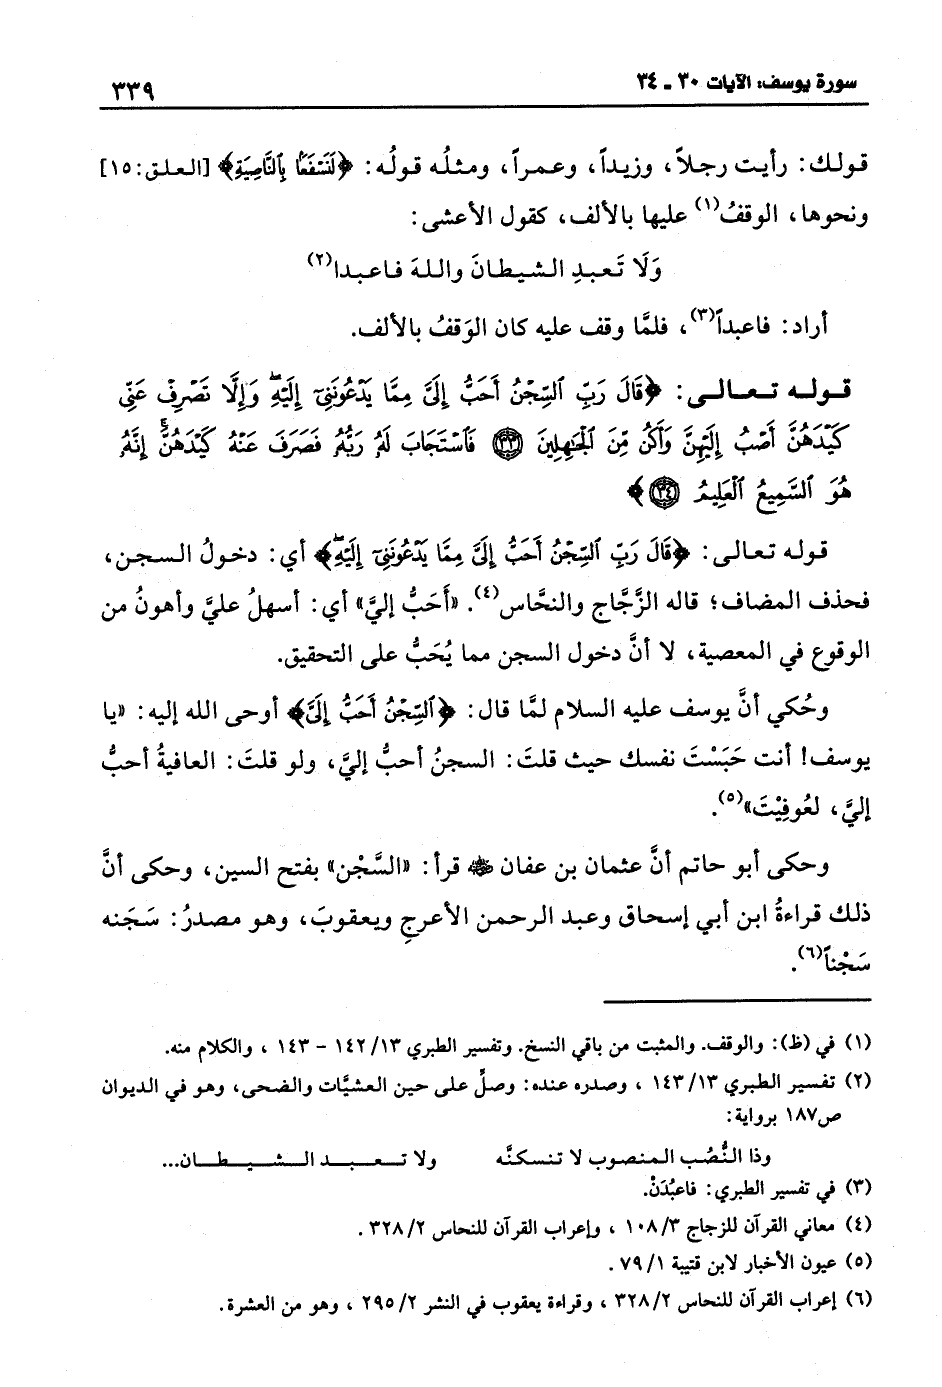 سورة يوسف: الآيات ٣٠ - ٣٤
٣٣٩
قولك: رأيت رجلاً، وزيداً، وعمراً، ومثلُه قولُه: ﴿لَنَسْفَعًۢا بِالنَّاصِيَةِ﴾ [العلق: ١٥]
ونحوها، الوقفُ(١) عليها بالألف، كقول الأعشى:
وَلَا تَعبدِ الشيطانَ واللهَ فاعبدا(٢)
أراد: فاعبداً(٣)، فلمَّا وقف عليه كان الوَقفُ بالألف.
قوله تعالى: ﴿قَالَ رَبِّ ٱلسِّجْنُ أَحَبُّ إِلَىَّ مِمَّا يَدْعُونَنِىٓ إِلَيْهِۖ وَإِلَّا تَصْرِفْ عَنِّى
كَيْدَهُنَّ أَصْبُ إِلَيْهِنَّ وَأَكُن مِّنَ ٱلْجَٰهِلِينَ ٣٣ فَٱسْتَجَابَ لَهُۥ رَبُّهُۥ فَصَرَفَ عَنْهُ كَيْدَهُنَّۚ إِنَّهُۥ
هُوَ ٱلسَّمِيعُ ٱلْعَلِيمُ ٣٤﴾
قوله تعالى: ﴿قَالَ رَبِّ ٱلسِّجْنُ أَحَبُّ إِلَىَّ مِمَّا يَدْعُونَنِىٓ إِلَيْهِۖ﴾ أي: دخولُ السجن،
فحذف المضاف؛ قاله الزَّجَّاج والنحَّاس(٤). «أَحَبُّ إليَّ» أي: أسهلُ عليَّ وأهونُ من
الوقوع في المعصية، لا أنَّ دخول السجن مما يُحَبُّ على التحقيق.
وحُكي أنَّ يوسف عليه السلام لمَّا قال: ﴿ٱلسِّجْنُ أَحَبُّ إِلَىَّ﴾ أوحى الله إليه: «يا
يوسف! أنت حَبَسْتَ نفسك حيث قلتَ: السجنُ أحبُّ إليَّ، ولو قلتَ: العافيةُ أحبُّ
إليَّ، لعُوفِيْتَ»(٥).
وحكى أبو حاتم أنَّ عثمان بن عفان ﷺ قرأ: «السَّجْن» بفتح السين، وحكى أنَّ
ذلك قراءةُ ابن أبي إسحاق وعبد الرحمن الأعرجِ ويعقوبَ، وهو مصدرُ: سَجَنه
سَجْناً(٦).
(١) في (ظ): والوقف. والمثبت من باقي النسخ. وتفسير الطبري ١٣/ ١٤٢ - ١٤٣ ، والكلام منه.
(٢) تفسير الطبري ١٣/ ١٤٣ ، وصدره عنده: وصلِّ على حين العشيَّات والضحى، وهو في الديوان
ص١٨٧ برواية:
وذا النُّصُب المنصوب لا تنسكنَّه ولا تعبد الشيطان...
(٣) في تفسير الطبري: فاعبُدَنْ.
(٤) معاني القرآن للزجاج ٣/ ١٠٨ ، وإعراب القرآن للنحاس ٢/ ٣٢٨ .
(٥) عيون الأخبار لابن قتيبة ١/ ٧٩ .
(٦) إعراب القرآن للنحاس ٢/ ٣٢٨ ، وقراءة يعقوب في النشر ٢/ ٢٩٥ ، وهو من العشرة.